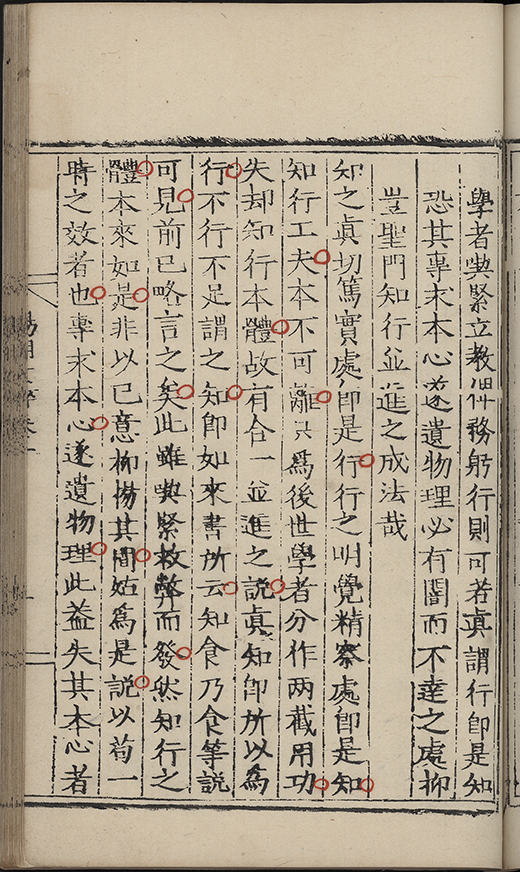 學者喫緊立教俾務躬行則可若真謂行即是知
恐其專求本心遂遺物理必有闇而不達之處抑
豈聖門知行並進之成法哉
知之真切篤實處即是行行之明覺精察處即是知
知行工夫本不可離只為後世學者分作兩截用功
失却知行本體故有合一並進之說真知即所以為
行不行不足謂之知即如來書所云知食乃食等說
可見前已略言之矣此雖喫緊救弊而發然知行之
體本來如是非以己意抑揚其間姑為是說以苟一
時之效者也專求本心遂遺物理此蓋失其本心者